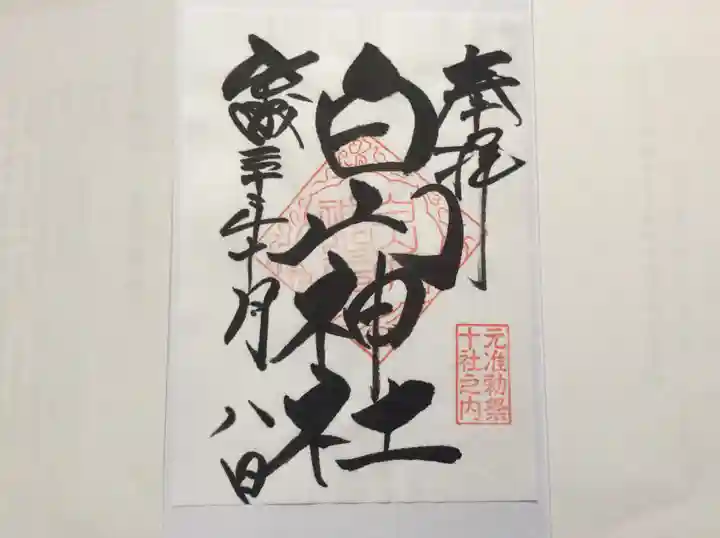 奉拝
元准勅祭
十社之内
白山神社
三十年十月八日